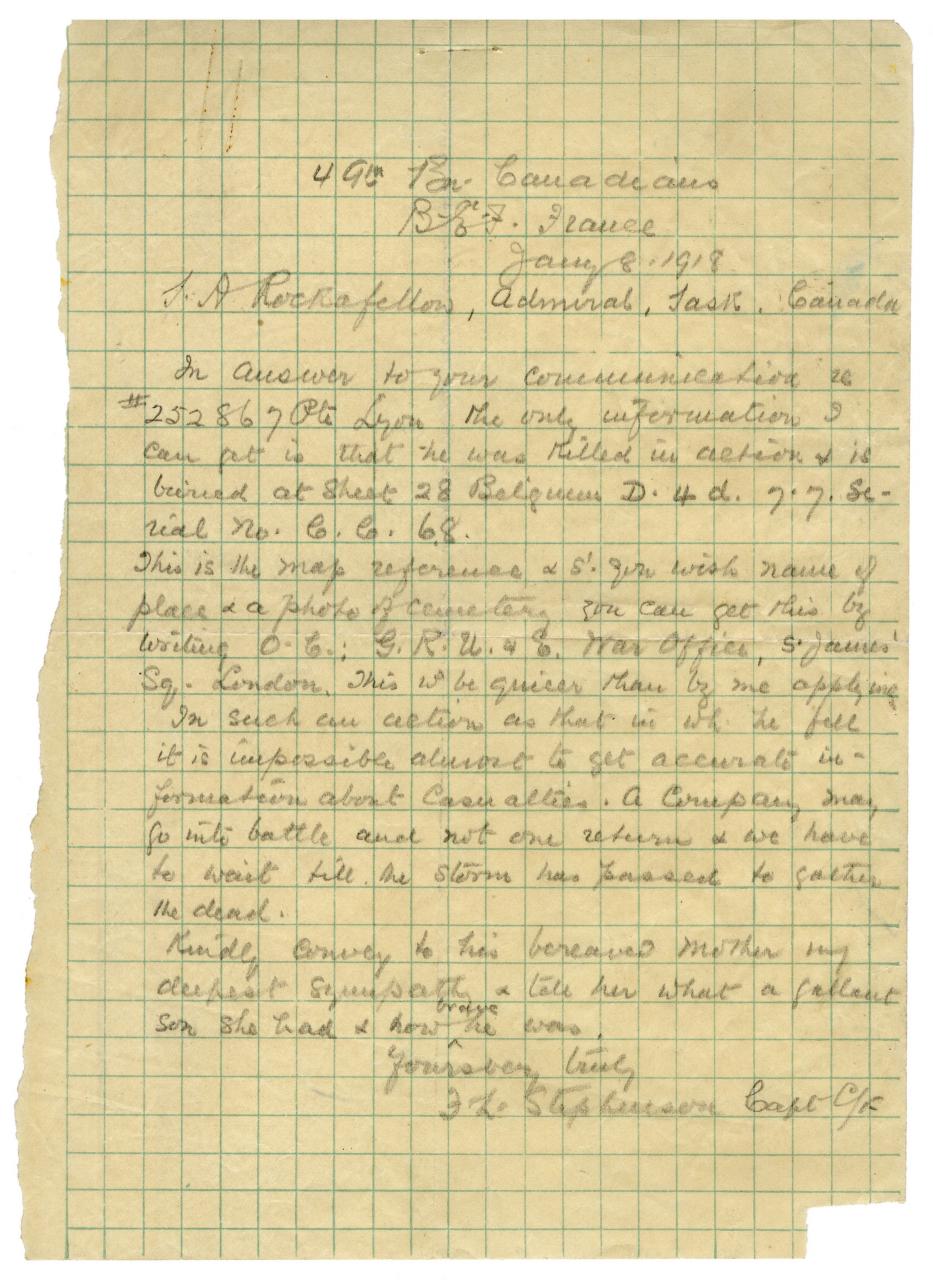 49th Bn. Canadians
B.E.F. France
Jany 8. 1918
S. A Rockafellow, Admiral, Sask. Canada
In answer to your communication re
#252867 Pte Lyon the only information I
can get is that he was killed in action & is
buried at Sheet 28 Belgium D. 4 d. 7.7. Se-
rial No. C. C. 68.
This is the map reference & sd. you wish name of
place & a photo of cemetery you can get this by
writing O.C.; G.R.U. & E. War Office, St James'
Sq. London. This wd be quicer than by me applying
In such an action as that in wh. he fell
it is impossible almost to get accurate in-
formation about casualties. A Company may
go into battle and not one return & we have
to wait till the storm has passed to gather
the dead.
Kindly convey to his bereaved mother my
deepest sympathy & tell her what a gallant
son she had & how brave he was.
Yours very truly
Stephenson Capt C/F